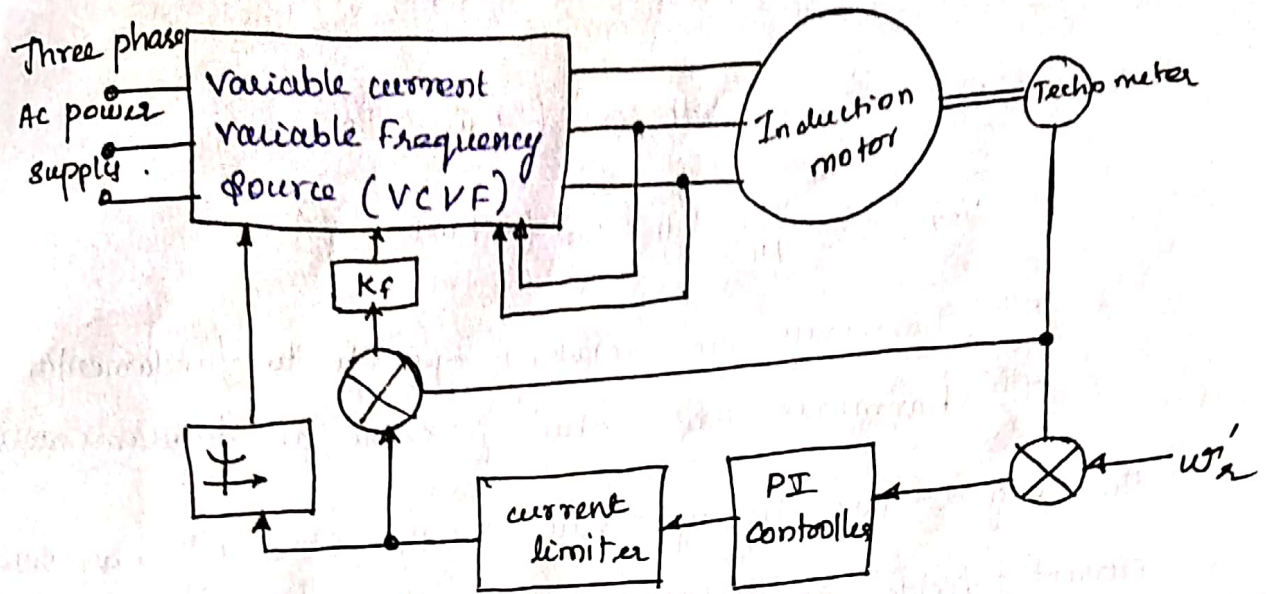 Three phase
Ac power
supply.
Variable current
variable Frequency
Source (VCVF)
Induction
motor
Techometer
Kf
current
limiter
PI
controller
ω'r